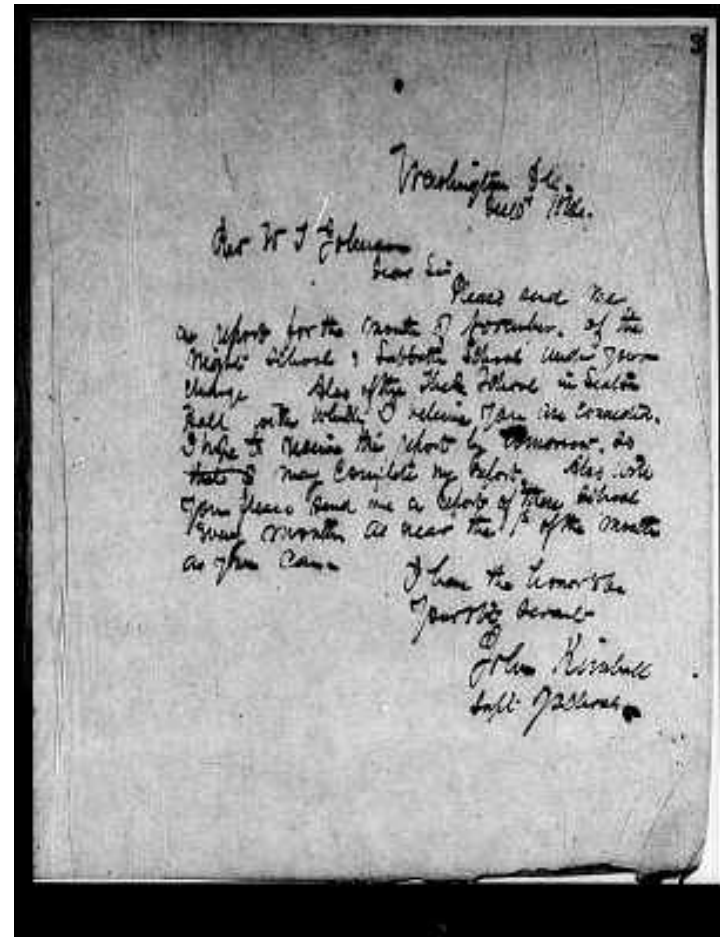 3
Washington D.C.
Rev W S Johnson
Dear Sir,
Please send me
a report for the month of November, of the
Night School & Sabbath School under your
charge Also of the School in
Hall with which I believe you are connected.
I hope to receive the report by tomorrow, so
that I may complete my report. Also will
you please send me a report of these School
every month, as near the 1st of the month
as you can
I have the honor to be
Your obt Servant
John Kimball
Supt Schools